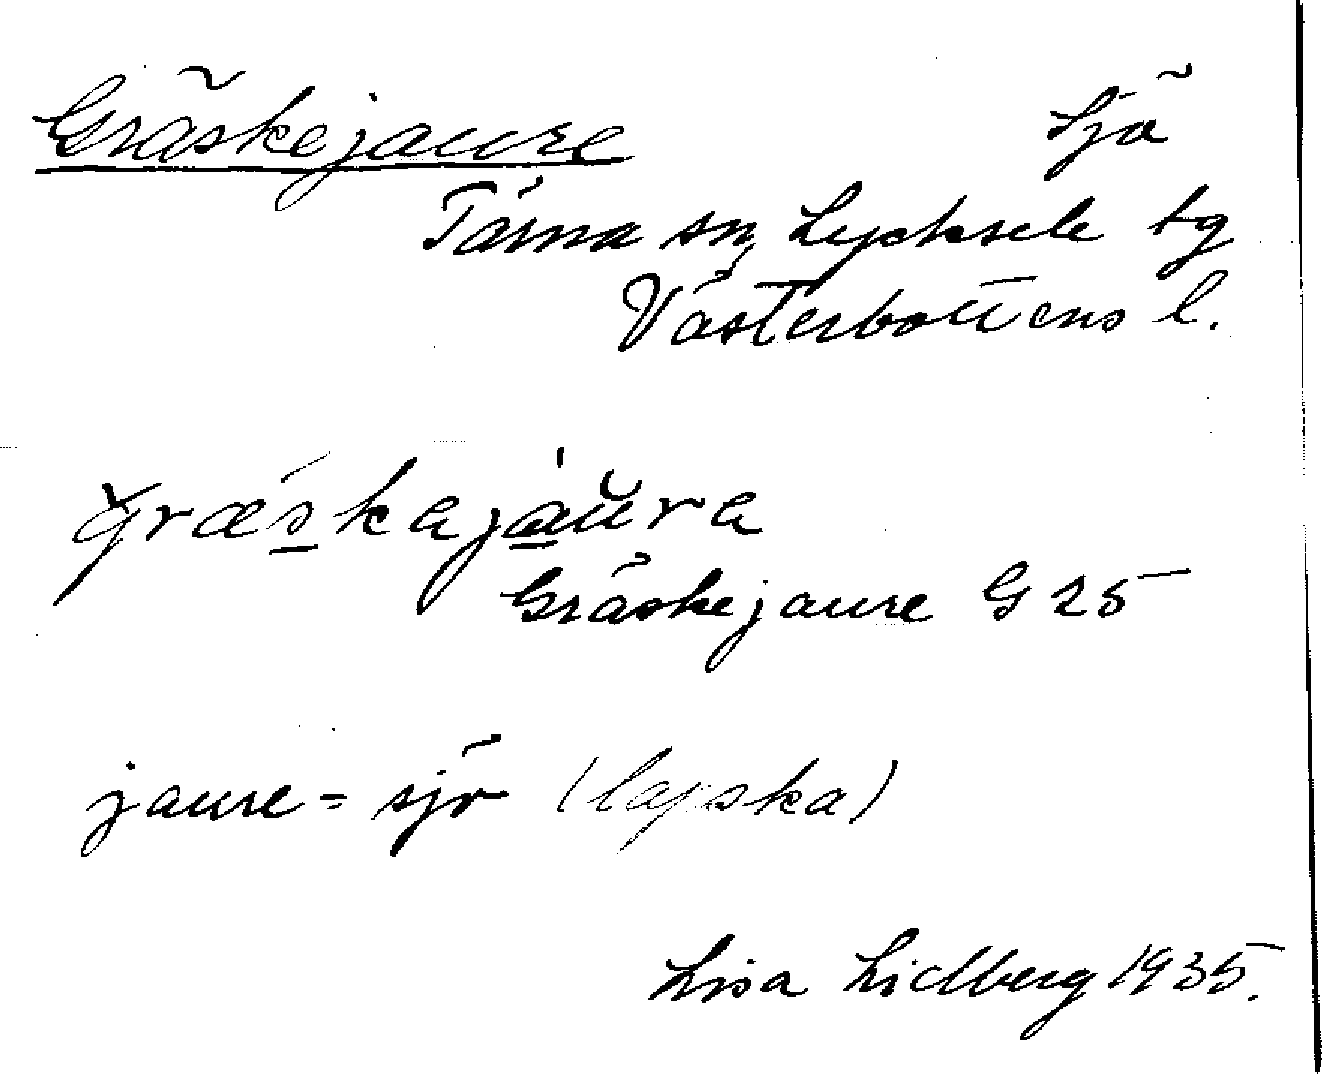 Gräskejaure Sjö
Tärna sn, Lycksele tg
Västerbottens l.
grǽskajàu̯ra
Gräskejaure G 25
jaure = sjö (lapska)
Lisa Lidberg 1935.